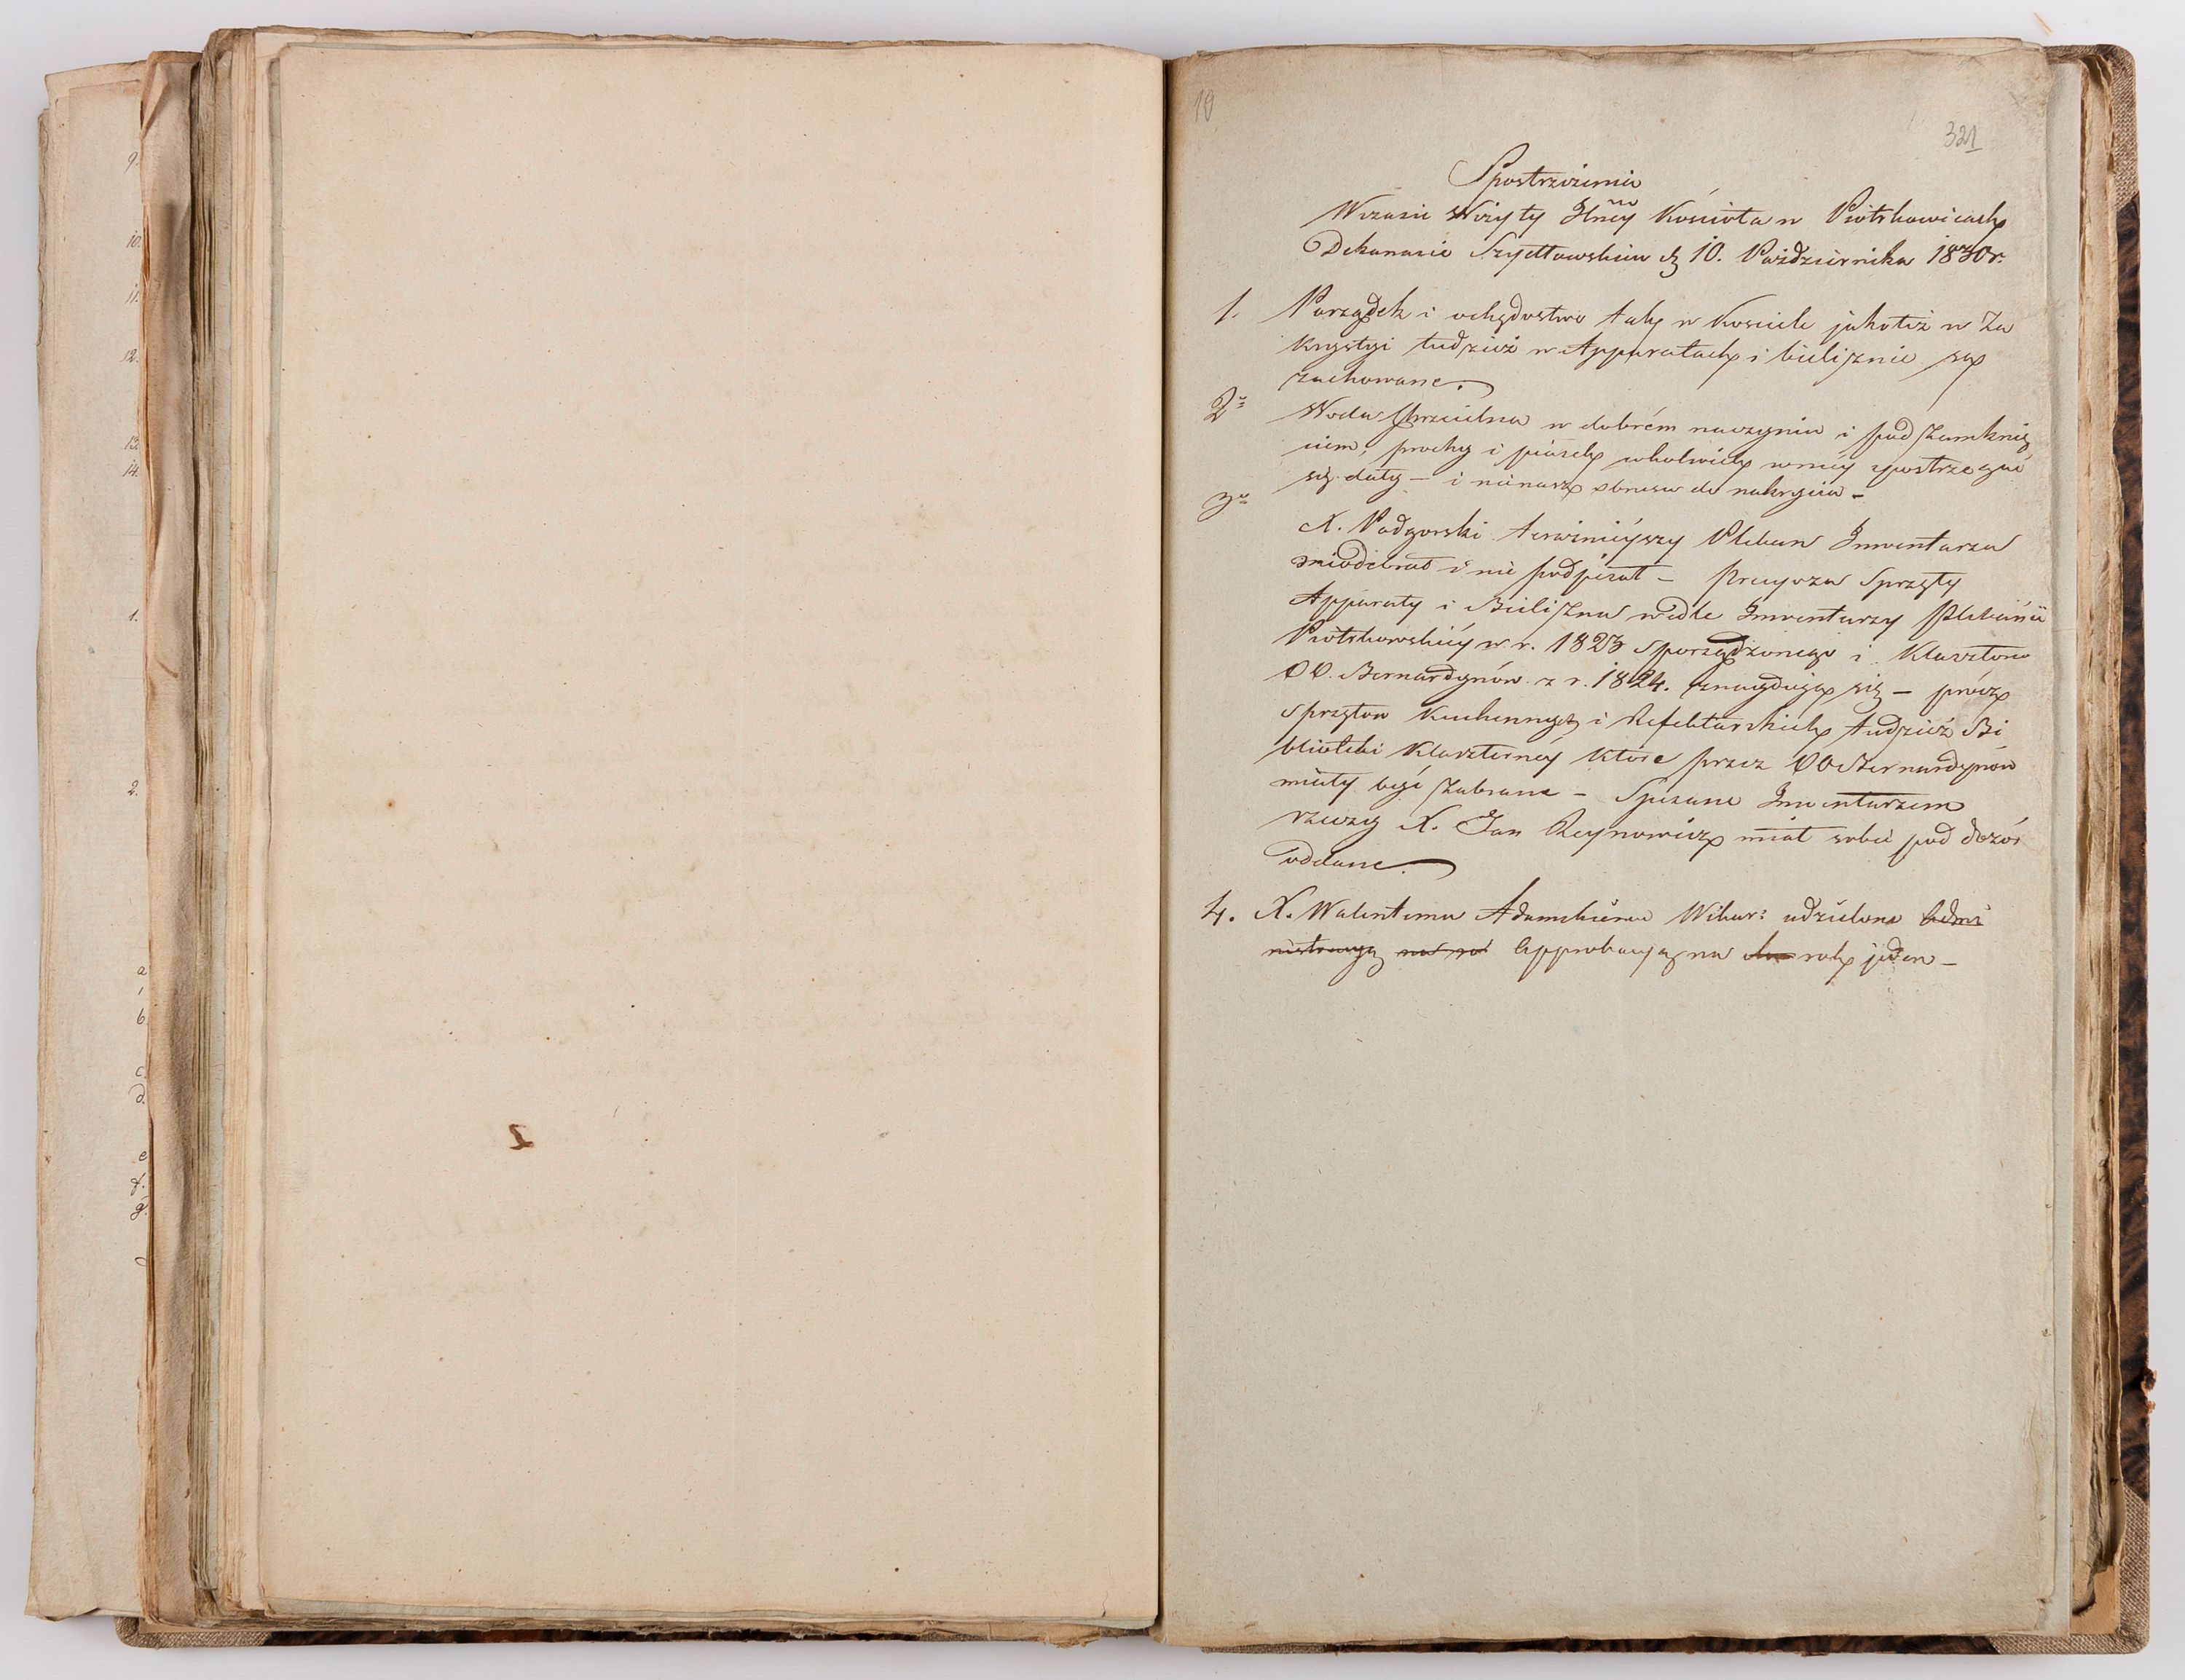 9.
10.
11.
12.
13.
14.
1.
2.
a
b
c.
d.
e
f.
g.
10
321
Spostrzeżenia
W czasie Wizyty Kościoła w Piotrkowicach
Dekanacie Szydłowskim d. 10. Października 1830 r.
1. Porządek i ochędostwo tak w Kościele jako też w Za
krystyi tudzież w Apparatach i bieliznie są
zachowane.
2º Woda Chrzcielna w dobrém naczyniu i pod zamknię
ciem, prochy i piasek w niéy spostrzegać
się dały – i nie masz obrusa do nakrycia –
3º
X. Podgorski terazniéyszy Pleban Inwentarza
nieodebrał i nie podpisał – Sprzęty
Apparaty i Bielizna wedle Inwentarzy Plebanii
Piotrkowskiéy w r. 1823 sporządzonego i Klasztoru
OO. Bernardynów z r. 1824. znayduią się – prócz
sprzętow kuchennych i Refektarskich tudzież Bi
blioteki Klasztornéy które przez OO Bernardynów
miały być zabrane – Spisane Inwentarzem
rzeczy X. Jan Reynowicz miał sobie pod dozór
oddane.
4. X. Walentemu Adamskiemu Wikar: udzielono Admi
nistracyą Approbacyą na rok jeden –